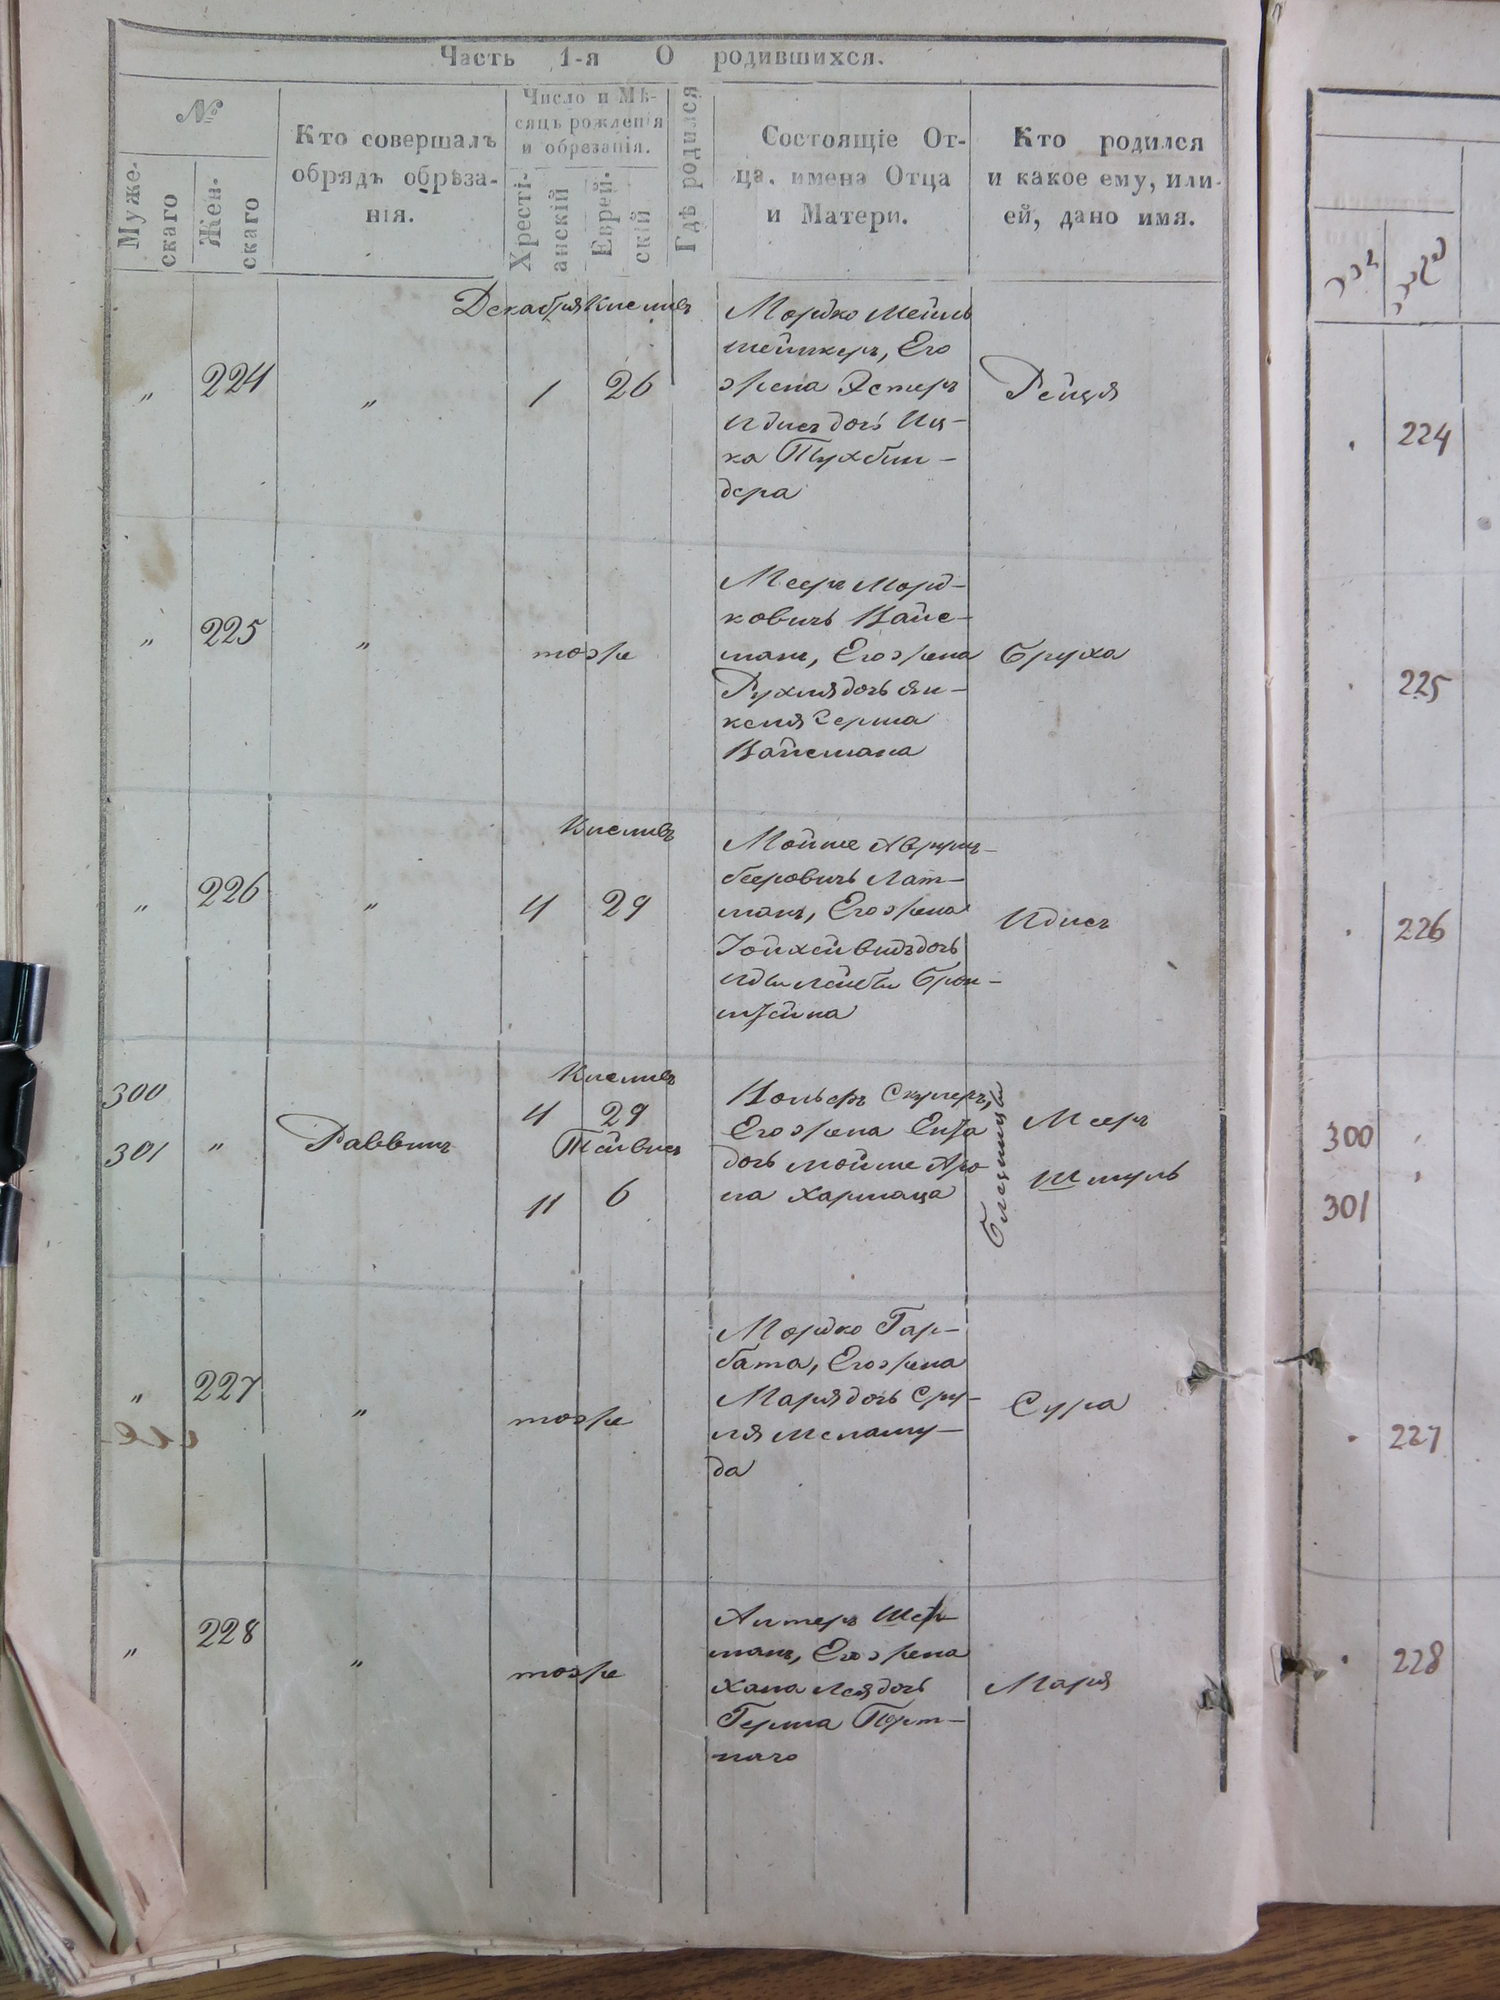 Часть 1-я О родившихся.
№
Муже-
скаго
Жен-
скаго
Кто совершалъ
обрядъ обрѣза-
нія.
Число и Мѣ-
сяцъ рожденія
и обрезанія.
Хресті-
анскій
Еврей-
скій
Гдѣ родился
Состоящіе От-
ца, имена Отца
и Матери.
Кто родился
и какое ему, или
ей, дано имя.
זכר
נקבה
Декабря Кисливъ
„ 224 „ 1 26
Мордко Мейль
шейнкеръ, Его
жена Эстеръ
Идисъ дочь Иц-
ка Тухбин-
дера
Рейзя
224
„ 225 „ тоже
Мееръ Морд-
ковичъ Вайс-
манъ, Его жена
Рухля дочь Ян-
келя Герша
Вайсмана
Бруха
225
Кисливъ
„ 226 „ 4 29
Мойше
беровичъ Лат-
манъ, Его жена
дочь
Лейбы Брон-
штейна
Идисъ
226
300
301 „ Раввинъ
Кисливъ
4 29
Тейвисъ
11 6
Вольфъ Скулеръ,
Его жена Ента
дочь Мойше Аро
на Хармаца
Близнецы
Мееръ
Шмуль
300
301
„ 227 „ тоже
Мордко Гар-
бата, Его жена
Маря дочь Сру-
ля Меламу-
да
Сура
227
„ 228 „ тоже
Алтеръ
манъ, Его жена
Хана Лея дочь
Герша Порт-
наго
Маря
228